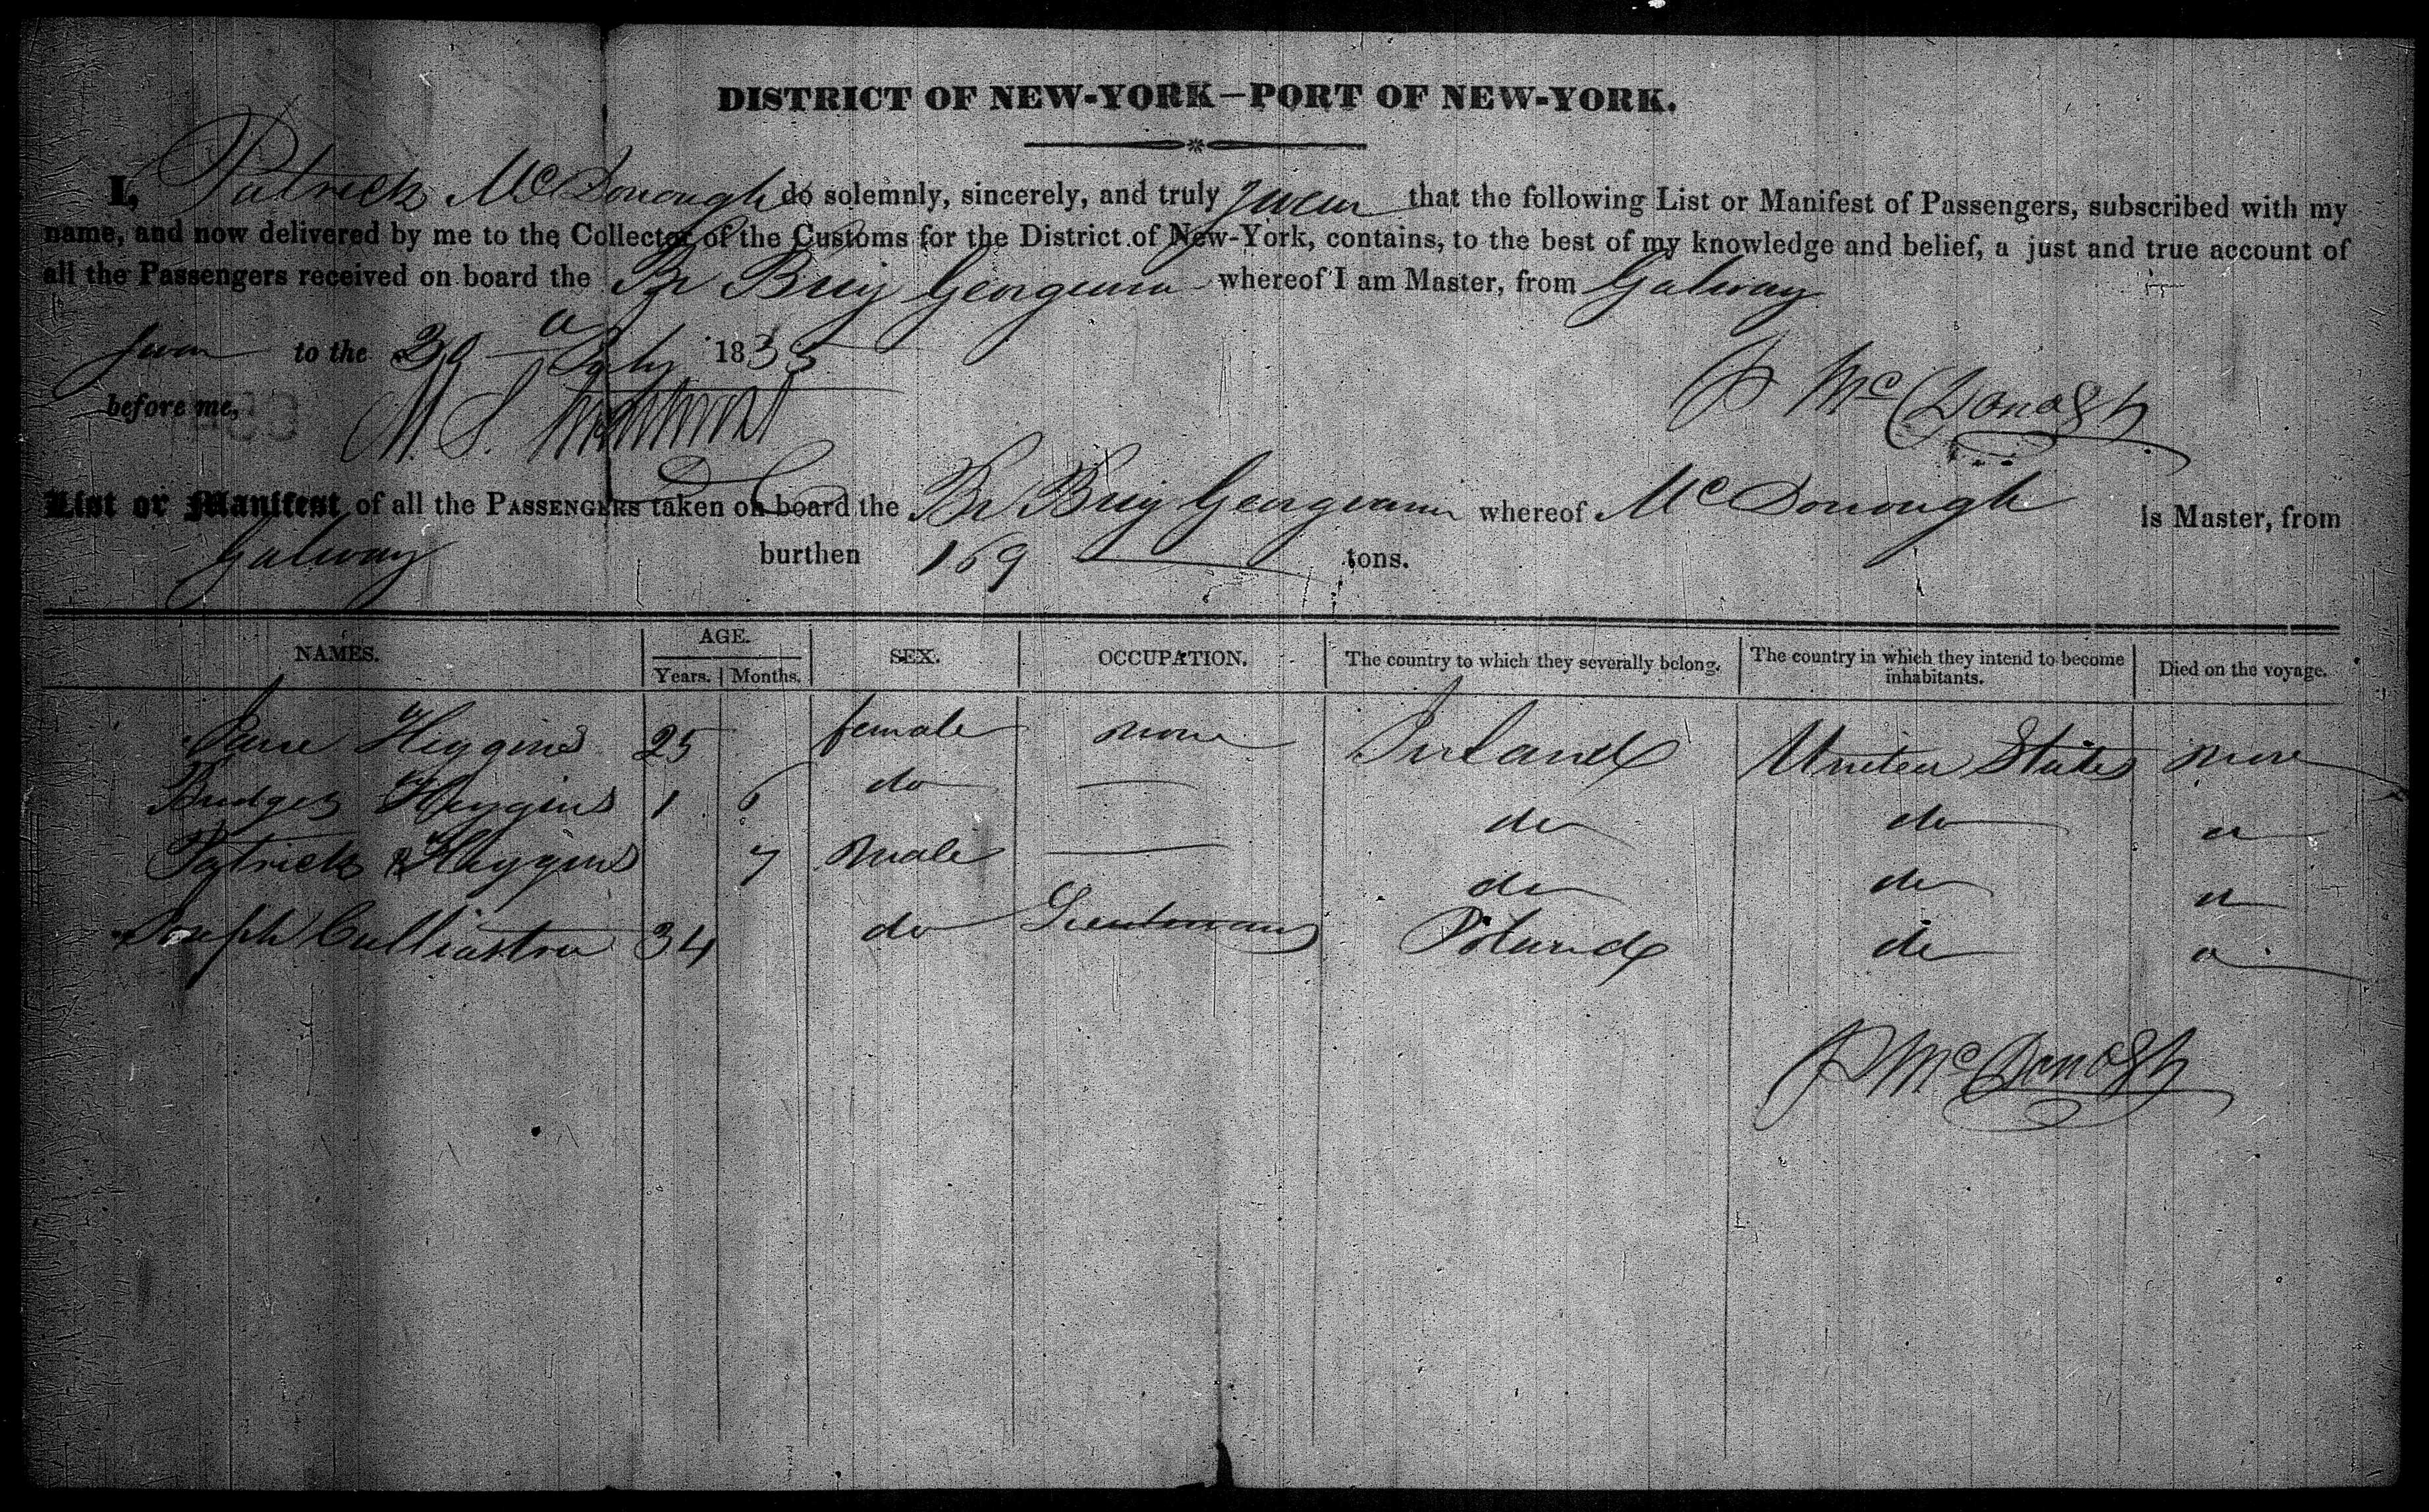 DISTRICT OF NEW-YORK—PORT OF NEW-YORK.
I, Patrick McDonough do solemnly, sincerely, and truly swear that the following List or Manifest of Passengers, subscribed with my
name, and now delivered by me to the Collector of the Customs for the District of New-York, contains, to the best of my knowledge and belief, a just and true account of
all the Passengers received on board the Br Brig Georgeana whereof I am Master, from Galway
Sworn to the 30 July 1835
before me,
P McDonogh
List or Manifest of all the PASSENGERS taken on board the Br Brig Georgeana whereof McDonough is Master, from
Galway burthen 169 tons.
NAMES. AGE. Years. Months. SEX. OCCUPATION. The country to which they severally belong. The country in which they intend to become inhabitants. Died on the voyage.
Higgins 25 female none Ireland United States none
Bridget Higgins 1 6 do — do do
Patrick Higgins 7 male — do do
Joseph 34 do Poland do
P McDonogh